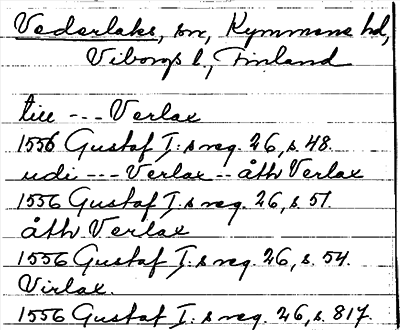 Vederlaks, sn, Kymmene hd,
Viborgs l., Finland
till --- Verlax
1556 Gustaf I:s reg. 26, s. 48.
udi --- Verlax -- åth Verlax
1556 Gustaf I:s reg. 26, s. 51.
åth Verlax
1556 Gustaf I:s reg. 26, s. 54.
Virlax.
1556 Gustaf I:s reg. 26, s. 817.